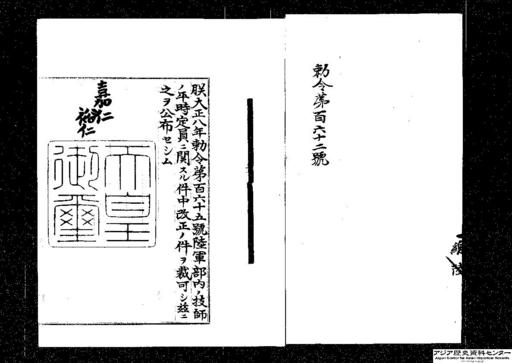 勅令第百六十二號
朕大正八年勅令第百六十五號陸軍部內ノ技師
ノ年時定員ニ関スル件中改正ノ件ヲ裁可シ茲ニ
之ヲ公布セシム
嘉仁
裕仁
天皇
御璽
陸
アジア歴史資料センター
Japan Center for Asian Historical Records